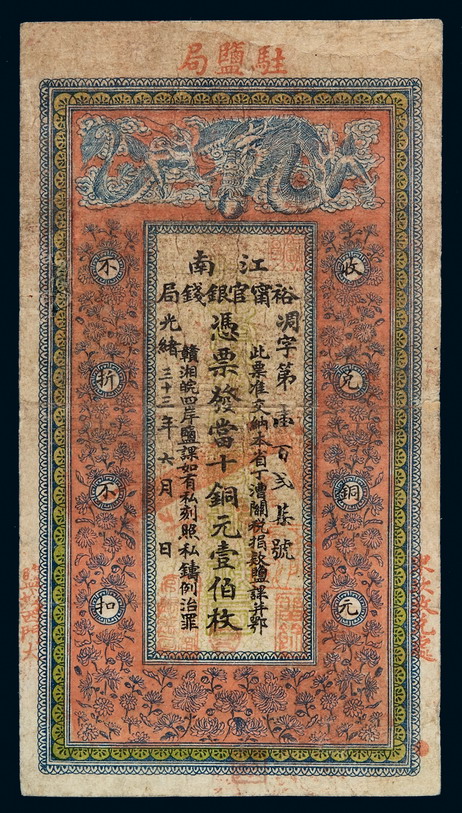 駐鹽局
江南
裕甯官銀錢局
收兌銅元
字第
號
此票准交納本省丁漕關稅捐款鹽課并鄂
憑票發當十銅元壹佰枚
贛湘皖四岸鹽課如有私刻照私鑄例治罪
光緒三十三年六月 日
不折不扣